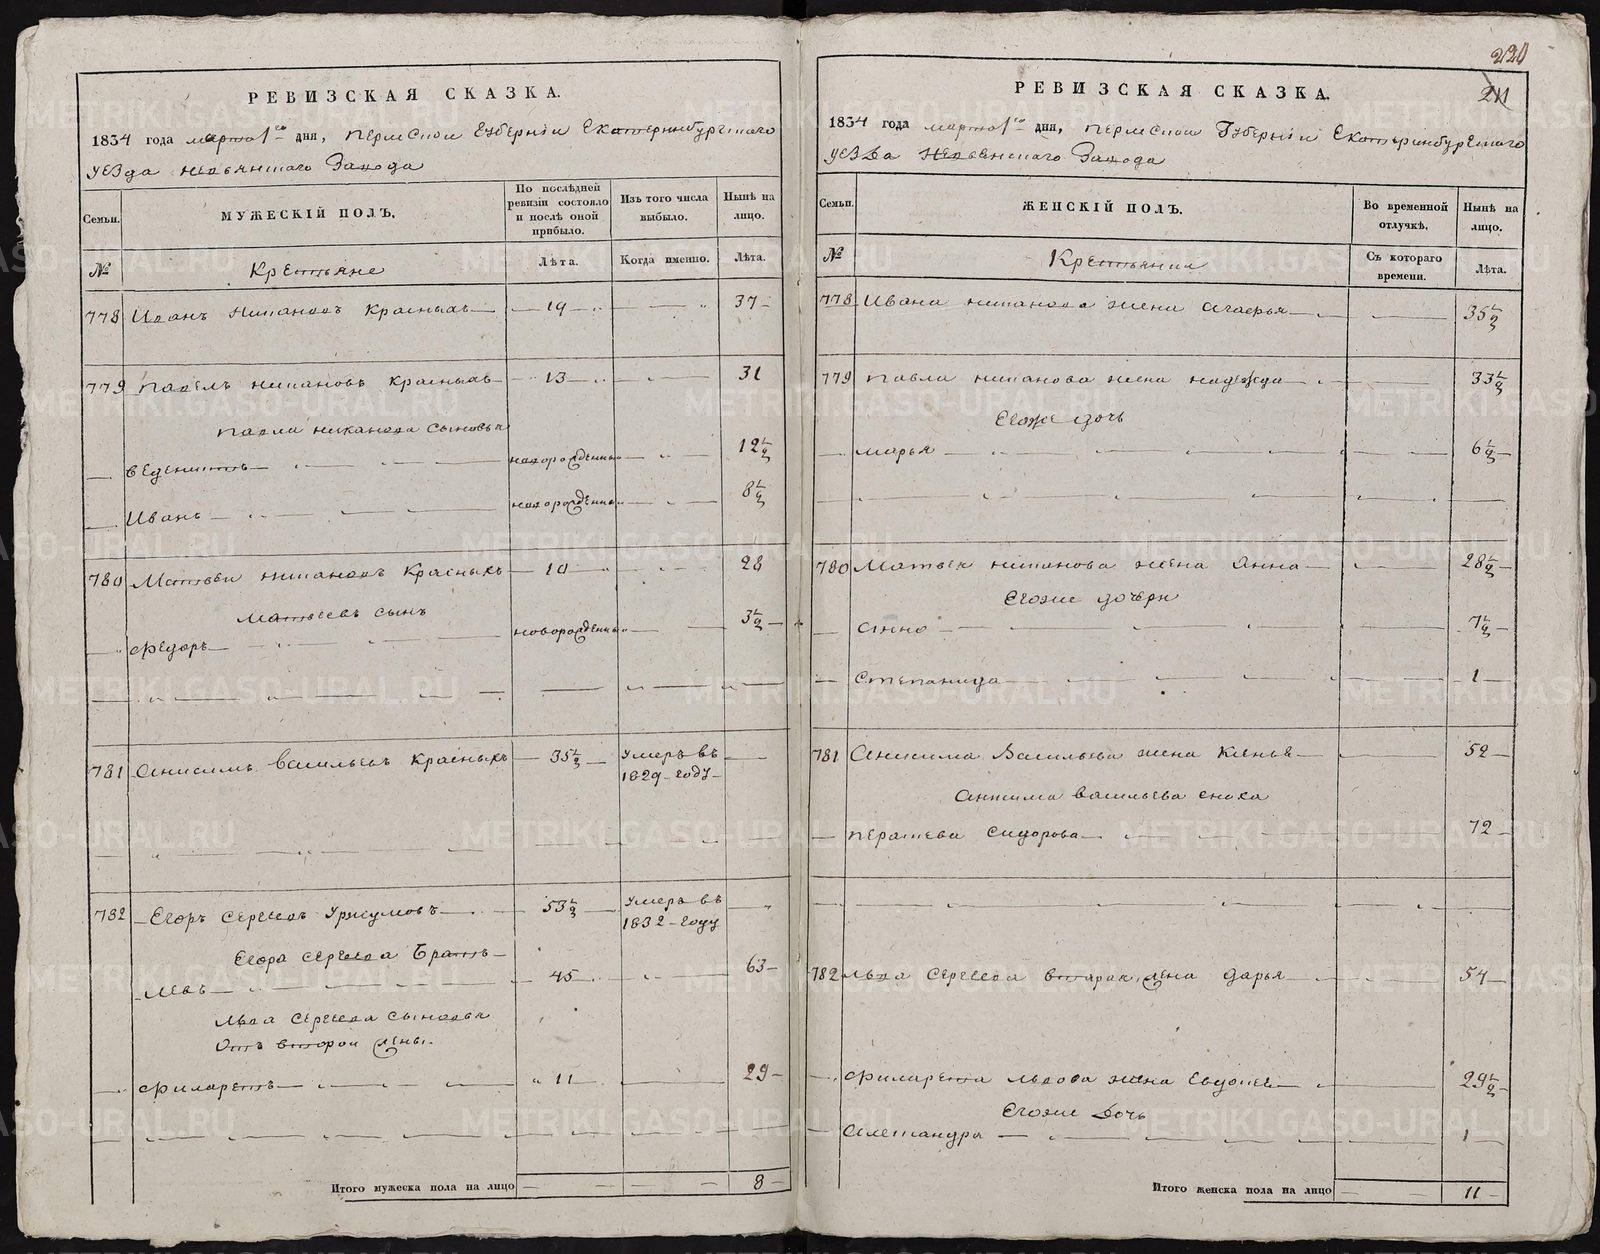 РЕВИЗСКАЯ СКАЗКА.
1834 года марта 1го дня, Пермской Губернии Екатеринбургского
уезда Невьянского Завода
Семьи. МУЖЕСКІЙ ПОЛЪ. По послѣдней ревизіи состояло и послѣ оной прибыло. Изъ того числа выбыло. Нынѣ на лицо.
№ Крестьяне Лѣта. Когда именно. Лѣта.
778 Иванъ Никановъ Красныхъ 19 37
779 Павелъ Никановъ Красныхъ 13 31
Павла Никанова сыновья
Веденитъ новорожденный 12½
Иванъ новорожденный 8½
780 Матвей Никановъ Красныхъ 10 28
Матвеевъ сынъ
Федоръ новорожденный 3½
781 Анисимъ Васильевъ Красныхъ 35½ Умеръ въ
1829 году
782 Егоръ Сергеевъ Уржумовъ 53½ Умеръ въ
1832 году
Егора Сергеева братъ
Левъ 45 63
Льва Сергеева сыновья
отъ второй жены
Филаретъ 11 29
Итого мужеска пола на лицо 8
220
211
РЕВИЗСКАЯ СКАЗКА.
1834 года марта 1го дня, Пермской Губернии Екатеринбургского
уезда Невьянского Завода
Семьи. ЖЕНСКІЙ ПОЛЪ. Во временной отлучкѣ. Нынѣ на лицо.
№ Крестьянки Съ котораго времени. Лѣта.
778 Ивана Никанова жена 35½
779 Павла Никанова жена Надежда 33½
Егоже дочь
Марья 6½
780 Матвея Никанова жена Анна 28½
Егоже дочери
Анна 7½
Степанида 1
781 Анисима Васильева жена 52
Анисима Васильева сноха
Сидорова 72
782 Льва Сергеева вторая жена Дарья 54
Филарета Львова жена 29½
Егоже дочь
Александра 1
Итого женска пола на лицо 11
METRIKI.GASO-URAL.RU